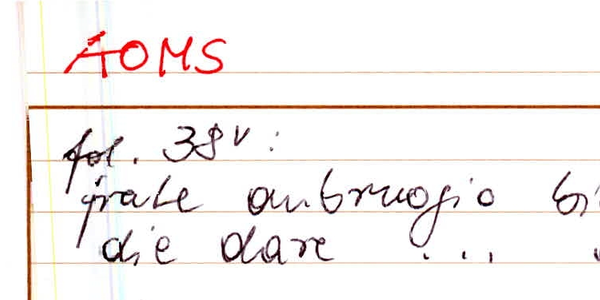 AOMS
fol. 38v:
frate ambruogio
die dare ...